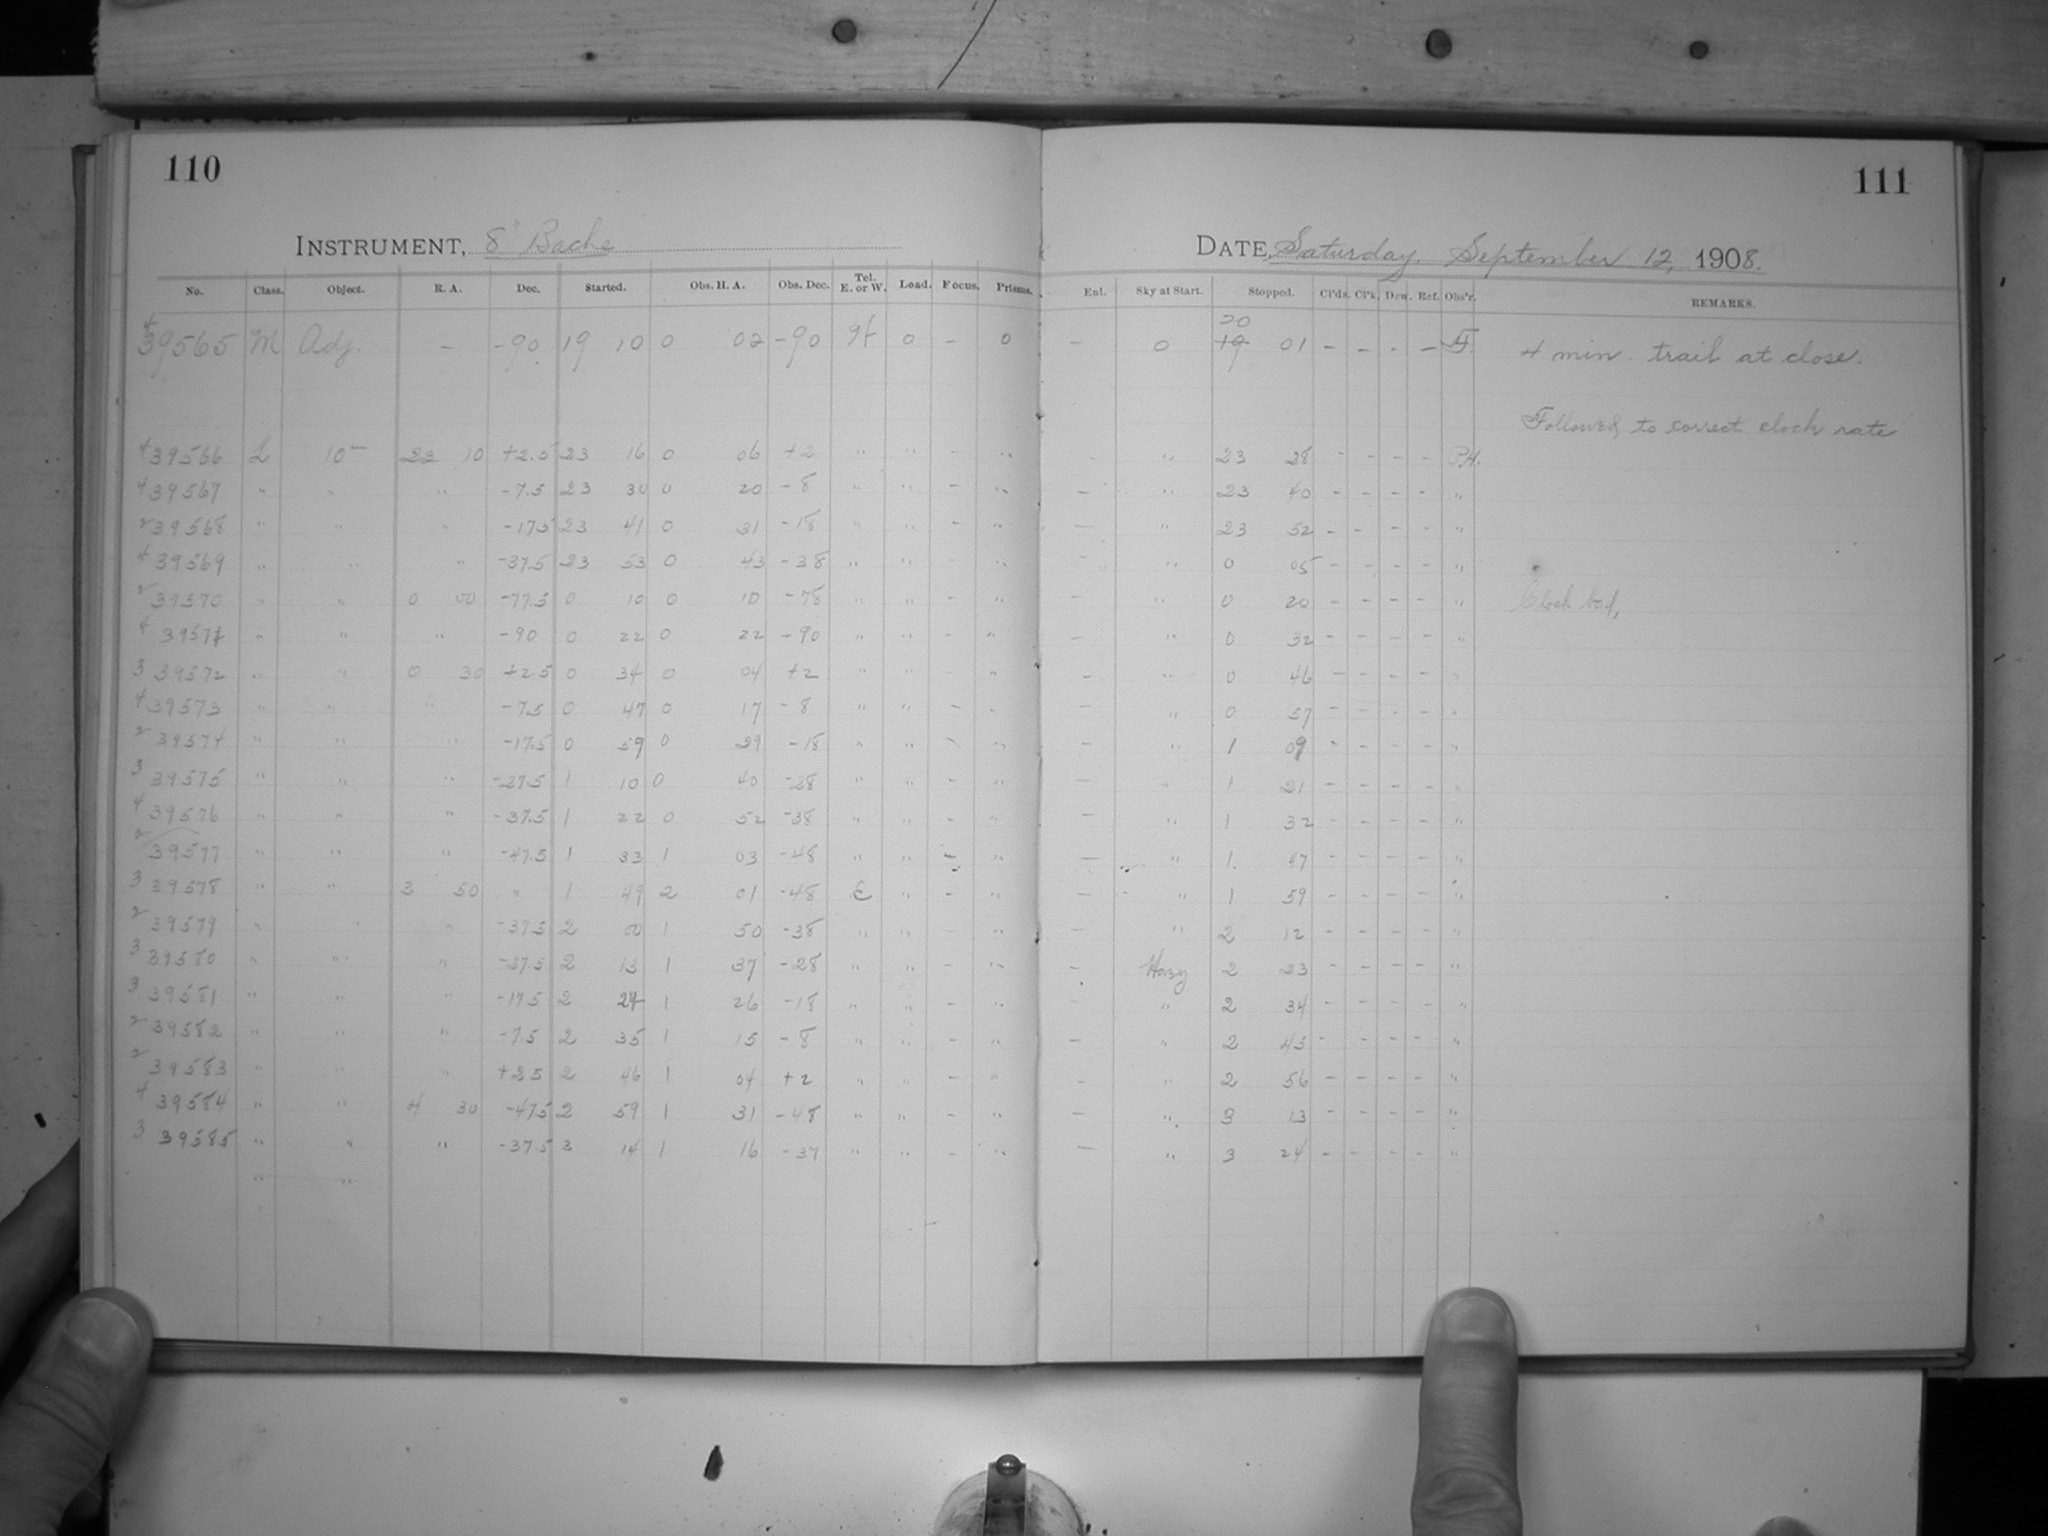 110
111
INSTRUMENT, 8" Bache
DATE, Saturday, September 12, 1908.
No. Class. Object. R. A. Dec. Started. Obs. H. A. Obs. Dec. Tel. E. or W. Load. Focus. Prisms. Enl. Sky at Start. Stopped. Cl'ds. Cl'k. Dew. Ref. Obs'r. REMARKS.
20
4 39565 M Adj. - -90 19 10 0 02 -90 0 - 0 - 0 19 01 - - - - 4 min. trail at close.
Followed to correct clock rate
4 39566 L 10m 23 10 +2.5 23 16 0 06 +2 " " - " - " 23 28 - - - -
4 39567 " " " -7.5 23 30 0 20 -8 " " - " - " 23 40 - - - - "
2 39568 " " " -17.5 23 41 0 31 -18 " " - " - " 23 52 - - - - "
4 39569 " " " -37.5 23 53 0 43 -38 " " " - " 0 05 - - - - "
2 39570 " " 0 00 -77.5 0 10 0 10 -78 " " - " - " 0 20 - - - - " Clock bad,
4 39571 " " " -90 0 22 0 22 -90 " " - " - " 0 32 - - - - "
3 39572 " " 0 30 +2.5 0 34 0 04 +2 " " - " - " 0 46 - - - - "
4 39573 " " " -7.5 0 47 0 17 -8 " " - " - " 0 57 - - - - "
2 39574 " " " -17.5 0 59 0 29 -18 " " - " - " 1 09 - - - - "
3 39575 " " " -27.5 1 10 0 40 -28 " - " - " 1 21 - - - - "
4 39576 " " " -37.5 1 22 0 52 -38 " " - " - " 1 32 - - - - "
2 39577 " " " -47.5 1 33 1 03 -48 " " - " - " 1 47 - - - - "
3 39578 " " 3 50 " 1 49 2 01 -48 E " - " - " 1 59 - - - - "
2 39579 " " " -37.5 2 00 1 50 -38 " " - " - " 2 12 - - - - "
3 39580 " " " -27.5 2 13 1 37 -28 " " - " - Hazy 2 23 - - - - "
3 39581 " " " -17.5 2 24 1 26 -18 " " - " - " 2 34 - - - - "
2 39582 " " " -7.5 2 35 1 15 -8 " " - " - " 2 45 - - - - "
2 39583 " " " +2.5 2 46 1 04 +2 " " - " - " 2 56 - - - - "
4 39584 " " 4 30 -47.5 2 59 1 31 -48 " " - " - " 3 13 - - - - "
3 39585 " " " -37.5 3 14 1 16 -37 " " - " - " 3 24 - - - - "
" "